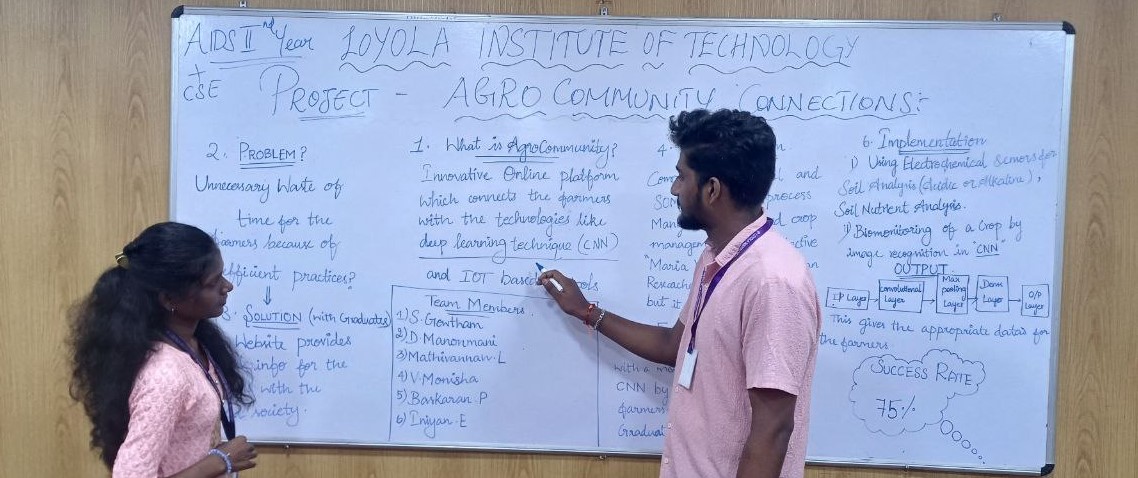 AIDS II nd Year
+
CSE
LOYOLA INSTITUTE OF TECHNOLOGY
PROJECT - AGRO COMMUNITY CONNECTIONS:-
2. PROBLEM?
Unnecessary Waste of
time for the
farmers because of
efficient practices?
SOLUTION (with Graduates)
Website provides
info for the
with the
society.
1. What is AgroCommunity?
Innovative Online platform
which connects the farmers
with the technologies like
deep learning technique (CNN)
and IOT based tools
Team Members
1) S. Gowtham
2) D. Manonmani
3) Mathivannan. L
4) V. Monisha
5) Baskaran. P
6) Iniyan. E
4
and
process
crop
"Maria
but it
CNN by
farmers
6. Implementation
i) Using Electrochemical sensors for
Soil Analysis (Acidic or Alkaline),
Soil Nutrient Analysis.
ii) Biomonitoring of a Crop by
image recognition in "CNN"
OUTPUT
I/P Layer
Convolutional
Layer
Max
pooling
Layer
Dense
Layer
O/P
Layer
This gives the appropriate datas for
the farmers.
SUCCESS RATE
75%